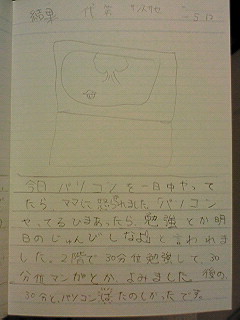 結果
5.12
今日パソコンを一日中やって
たらママに怒られました「パソコン
やってるひまあったら、勉強とか明
日のじゅんびしなよ」と言われま
した。2階で30分位勉強して、30
分位マンガとか、よみました。後の
30分と、パソコンはたのしかったです。